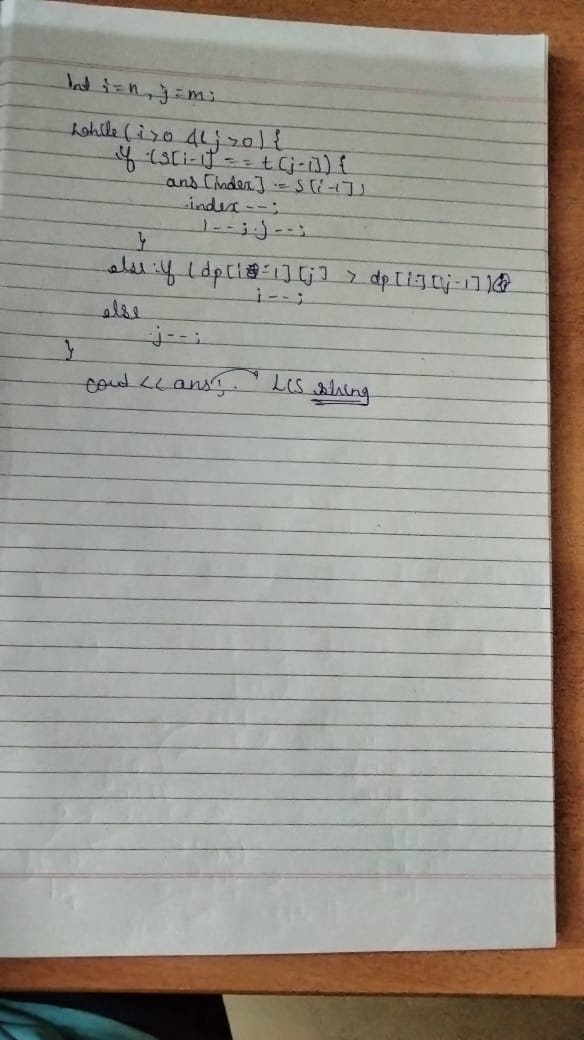 int i=n, j=m;
while (i>0 && j>0) {
if (s[i-1] == t[j-1]) {
ans[index] = s[i-1];
index--;
i--; j--;
}
else if (dp[i-1][j] > dp[i][j-1])
i--;
else
j--;
}
cout << ans; LCS string